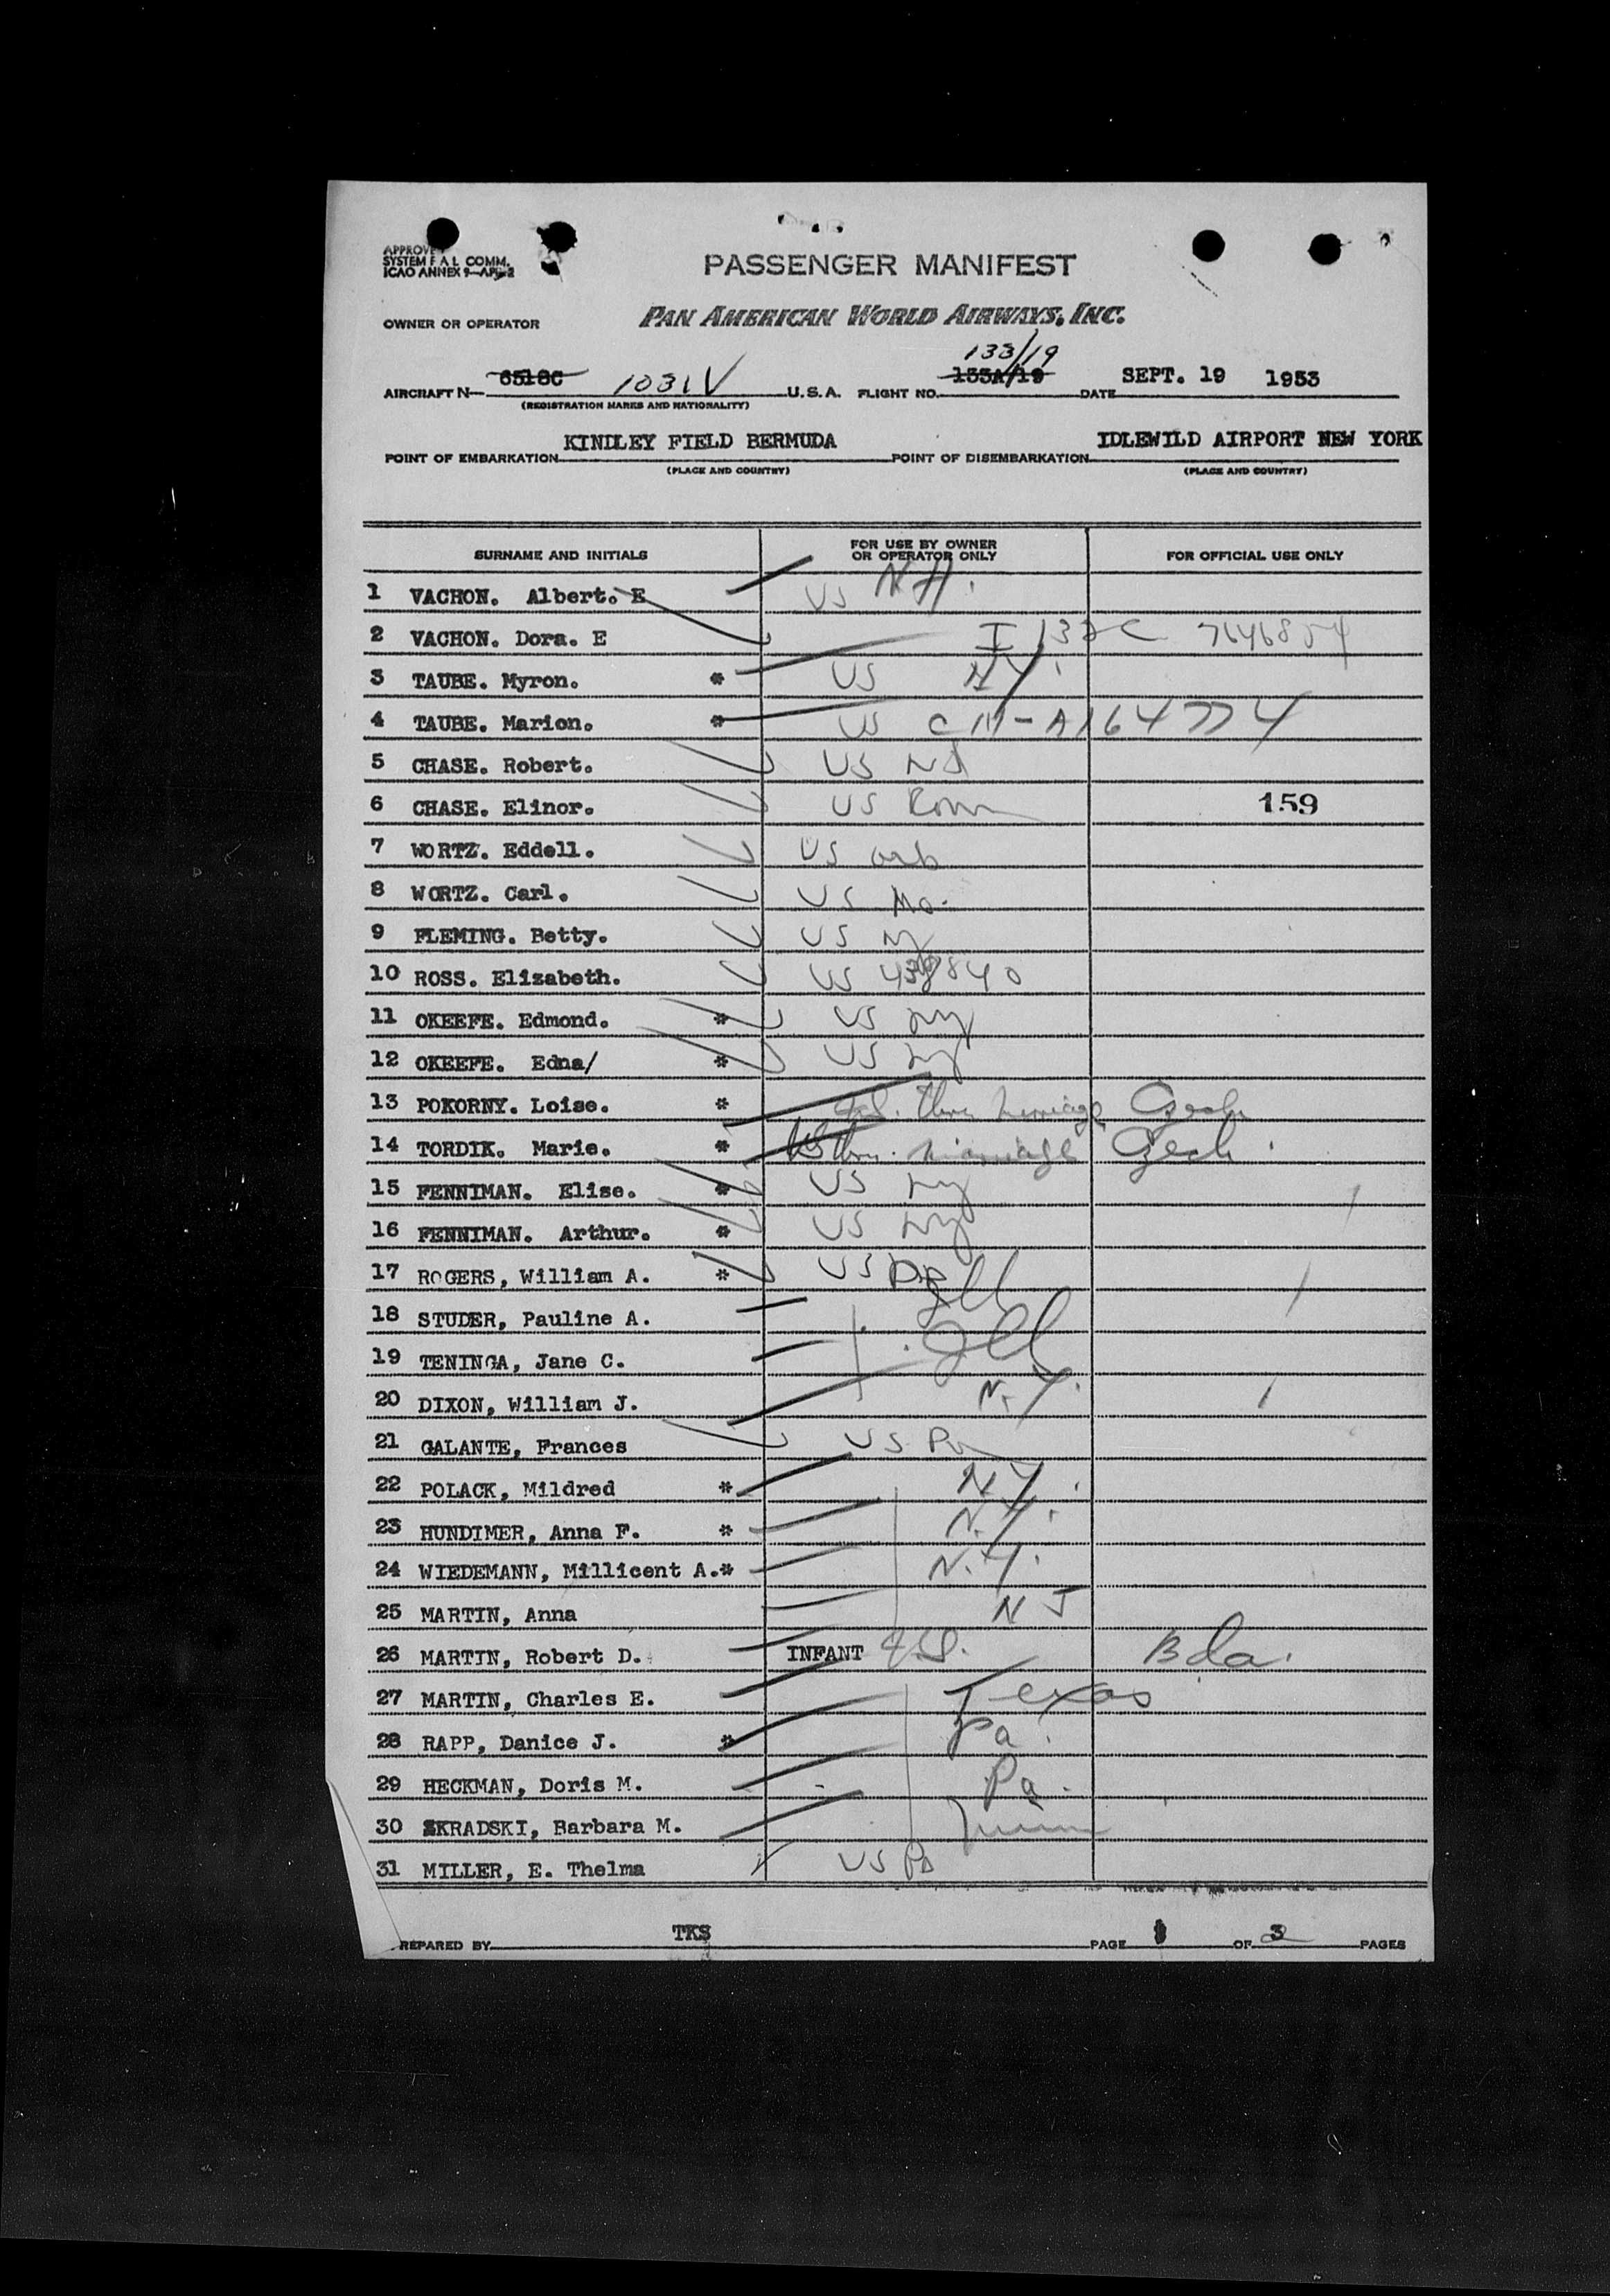 APPROVED
SYSTEM F A L COMM.
ICAO ANNEX 9—APP.2
PASSENGER MANIFEST
OWNER OR OPERATOR PAN AMERICAN WORLD AIRWAYS, INC.
133/19
AIRCRAFT N— 6518C 1031V U.S.A. FLIGHT NO. 133A/19 DATE SEPT. 19 1953
(REGISTRATION MARKS AND NATIONALITY)
POINT OF EMBARKATION KINDLEY FIELD BERMUDA POINT OF DISEMBARKATION IDLEWILD AIRPORT NEW YORK
(PLACE AND COUNTRY) (PLACE AND COUNTRY)
SURNAME AND INITIALS FOR USE BY OWNER OR OPERATOR ONLY FOR OFFICIAL USE ONLY
1 VACHON. Albert. E US N.H.
2 VACHON. Dora. E I 132C
3 TAUBE. Myron. * US N.Y.
4 TAUBE. Marion. * US
5 CHASE. Robert. US NJ
6 CHASE. Elinor. US 159
7 WORTZ. Eddell. US
8 WORTZ. Carl. US Mo.
9 FLEMING. Betty. US NY
10 ROSS. Elizabeth. US
11 OKEEFE. Edmond. * US NY
12 OKEEFE. Edna/ * US NY
13 POKORNY. Loise. * thru marriage Czech
14 TORDIK. Marie. * US thru. marriage Czech.
15 FENNIMAN. Elise. * US NY
16 FENNIMAN. Arthur. * US NY
17 ROGERS, William A. * US
18 STUDER, Pauline A. Ill
19 TENINGA, Jane C. Ill
20 DIXON, William J. N.Y.
21 GALANTE, Frances US Pa
22 POLACK, Mildred * N.Y.
23 HUNDIMER, Anna F. * N.Y.
24 WIEDEMANN, Millicent A.* N.Y.
25 MARTIN, Anna N J
26 MARTIN, Robert D. INFANT U.S. Bda.
27 MARTIN, Charles E. Texas
28 RAPP, Danice J. * Pa.
29 HECKMAN, Doris M. Pa.
30 SKRADSKI, Barbara M.
31 MILLER, E. Thelma US Pa
PREPARED BY TKS PAGE 1 OF 3 PAGES